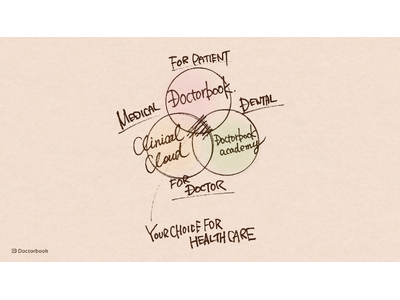 FOR PATIENT
Doctorbook.
MEDICAL
DENTAL
Clinical
Cloud
Doctorbook
academy
FOR
DOCTOR
YOUR CHOICE FOR
HEALTHCARE
Doctorbook